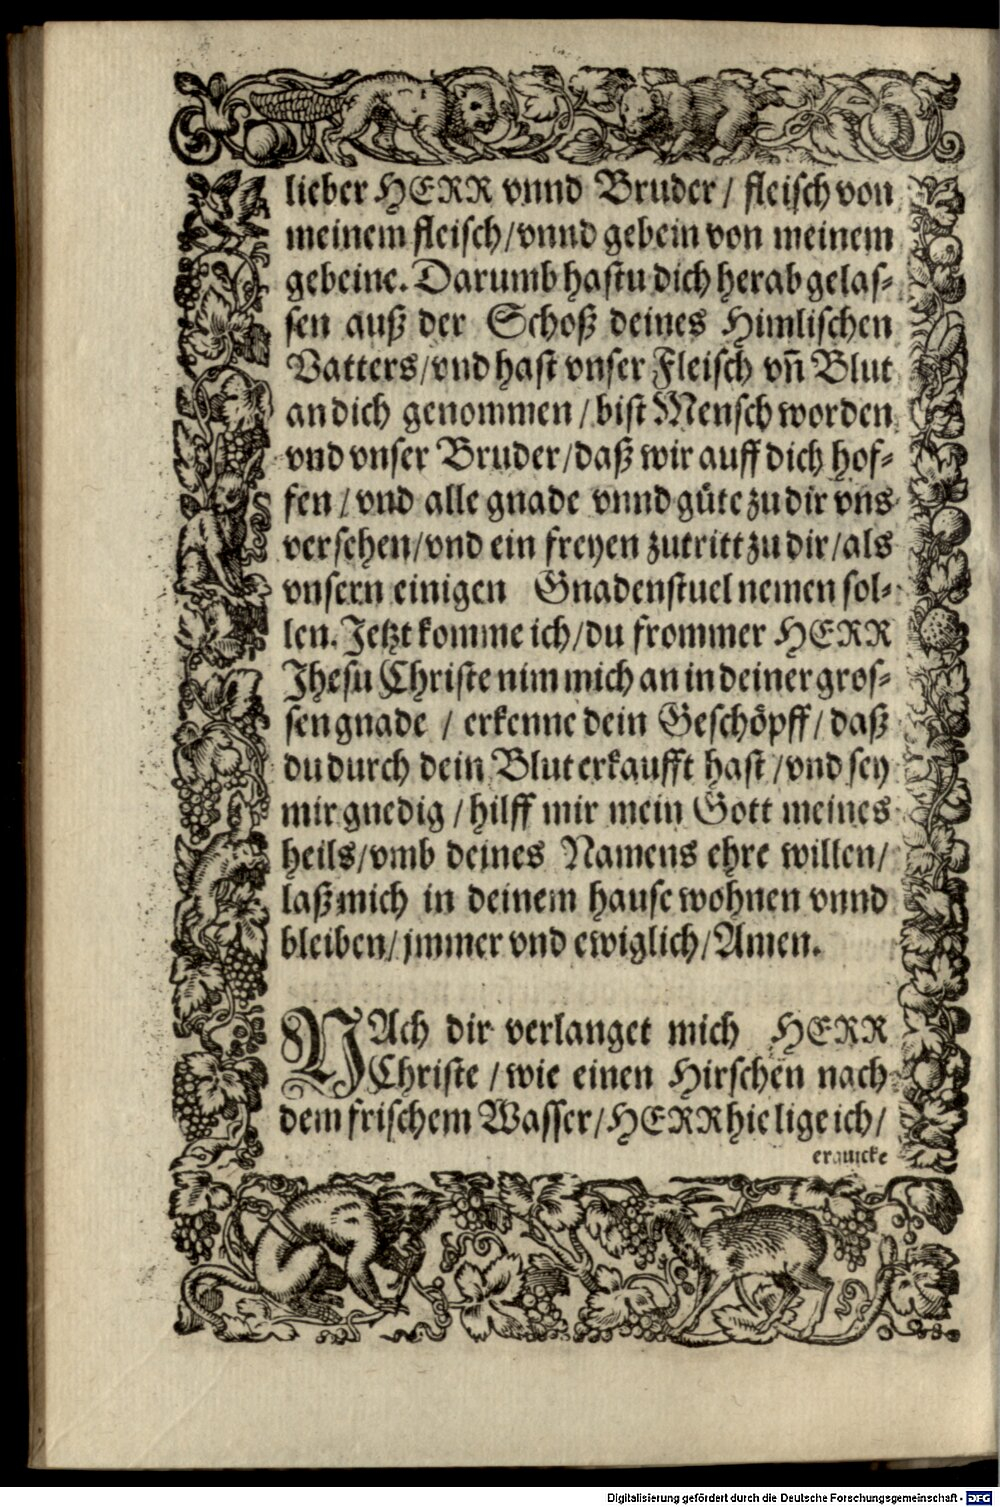 lieber HERR vnnd Bruder / fleisch von
meinem fleisch / vnnd gebein von meinem
gebeine. Darumb hastu dich herab gelas-
sen auß der Schoß deines Himlischen
Vatters / vnd hast vnser Fleisch vñ Blut
an dich genommen / bist Mensch worden
vnd vnser Bruder / daß wir auff dich hof-
fen / vnd alle gnade vnnd güte zu dir vns
versehen / vnd ein freyen zutritt zu dir / als
vnsern einigen Gnadenstuel nemen sol-
len. Jetzt komme ich / du frommer HERR
Jhesu Christe nim mich an in deiner gros-
sen gnade / erkenne dein Geschöpff / daß
du durch dein Blut erkaufft hast / vnd sey
mir gnedig / hilff mir mein Gott meines
heils / vmb deines Namens ehre willen /
laß mich in deinem hause wohnen vnnd
bleiben / jmmer vnd ewiglich / Amen.
NAch dir verlanget mich HERR
Christe / wie einen Hirschen nach
dem frischem Wasser / HERR hie lige ich /
erquicke
Digitalisierung gefördert durch die Deutsche Forschungsgemeinschaft - DFG